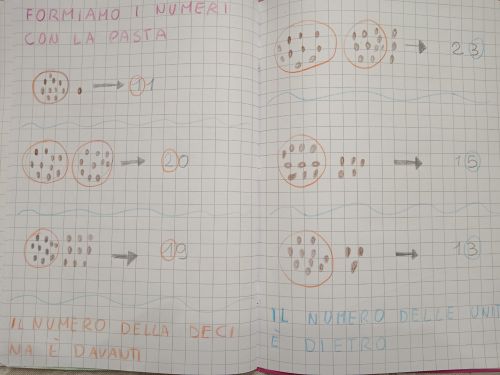 FORMIAMO I NUMERI
CON LA PASTA
11
20
19
IL NUMERO DELLA DECI
NA È DAVANTI
23
15
13
IL NUMERO DELLE UNI
È DIETRO